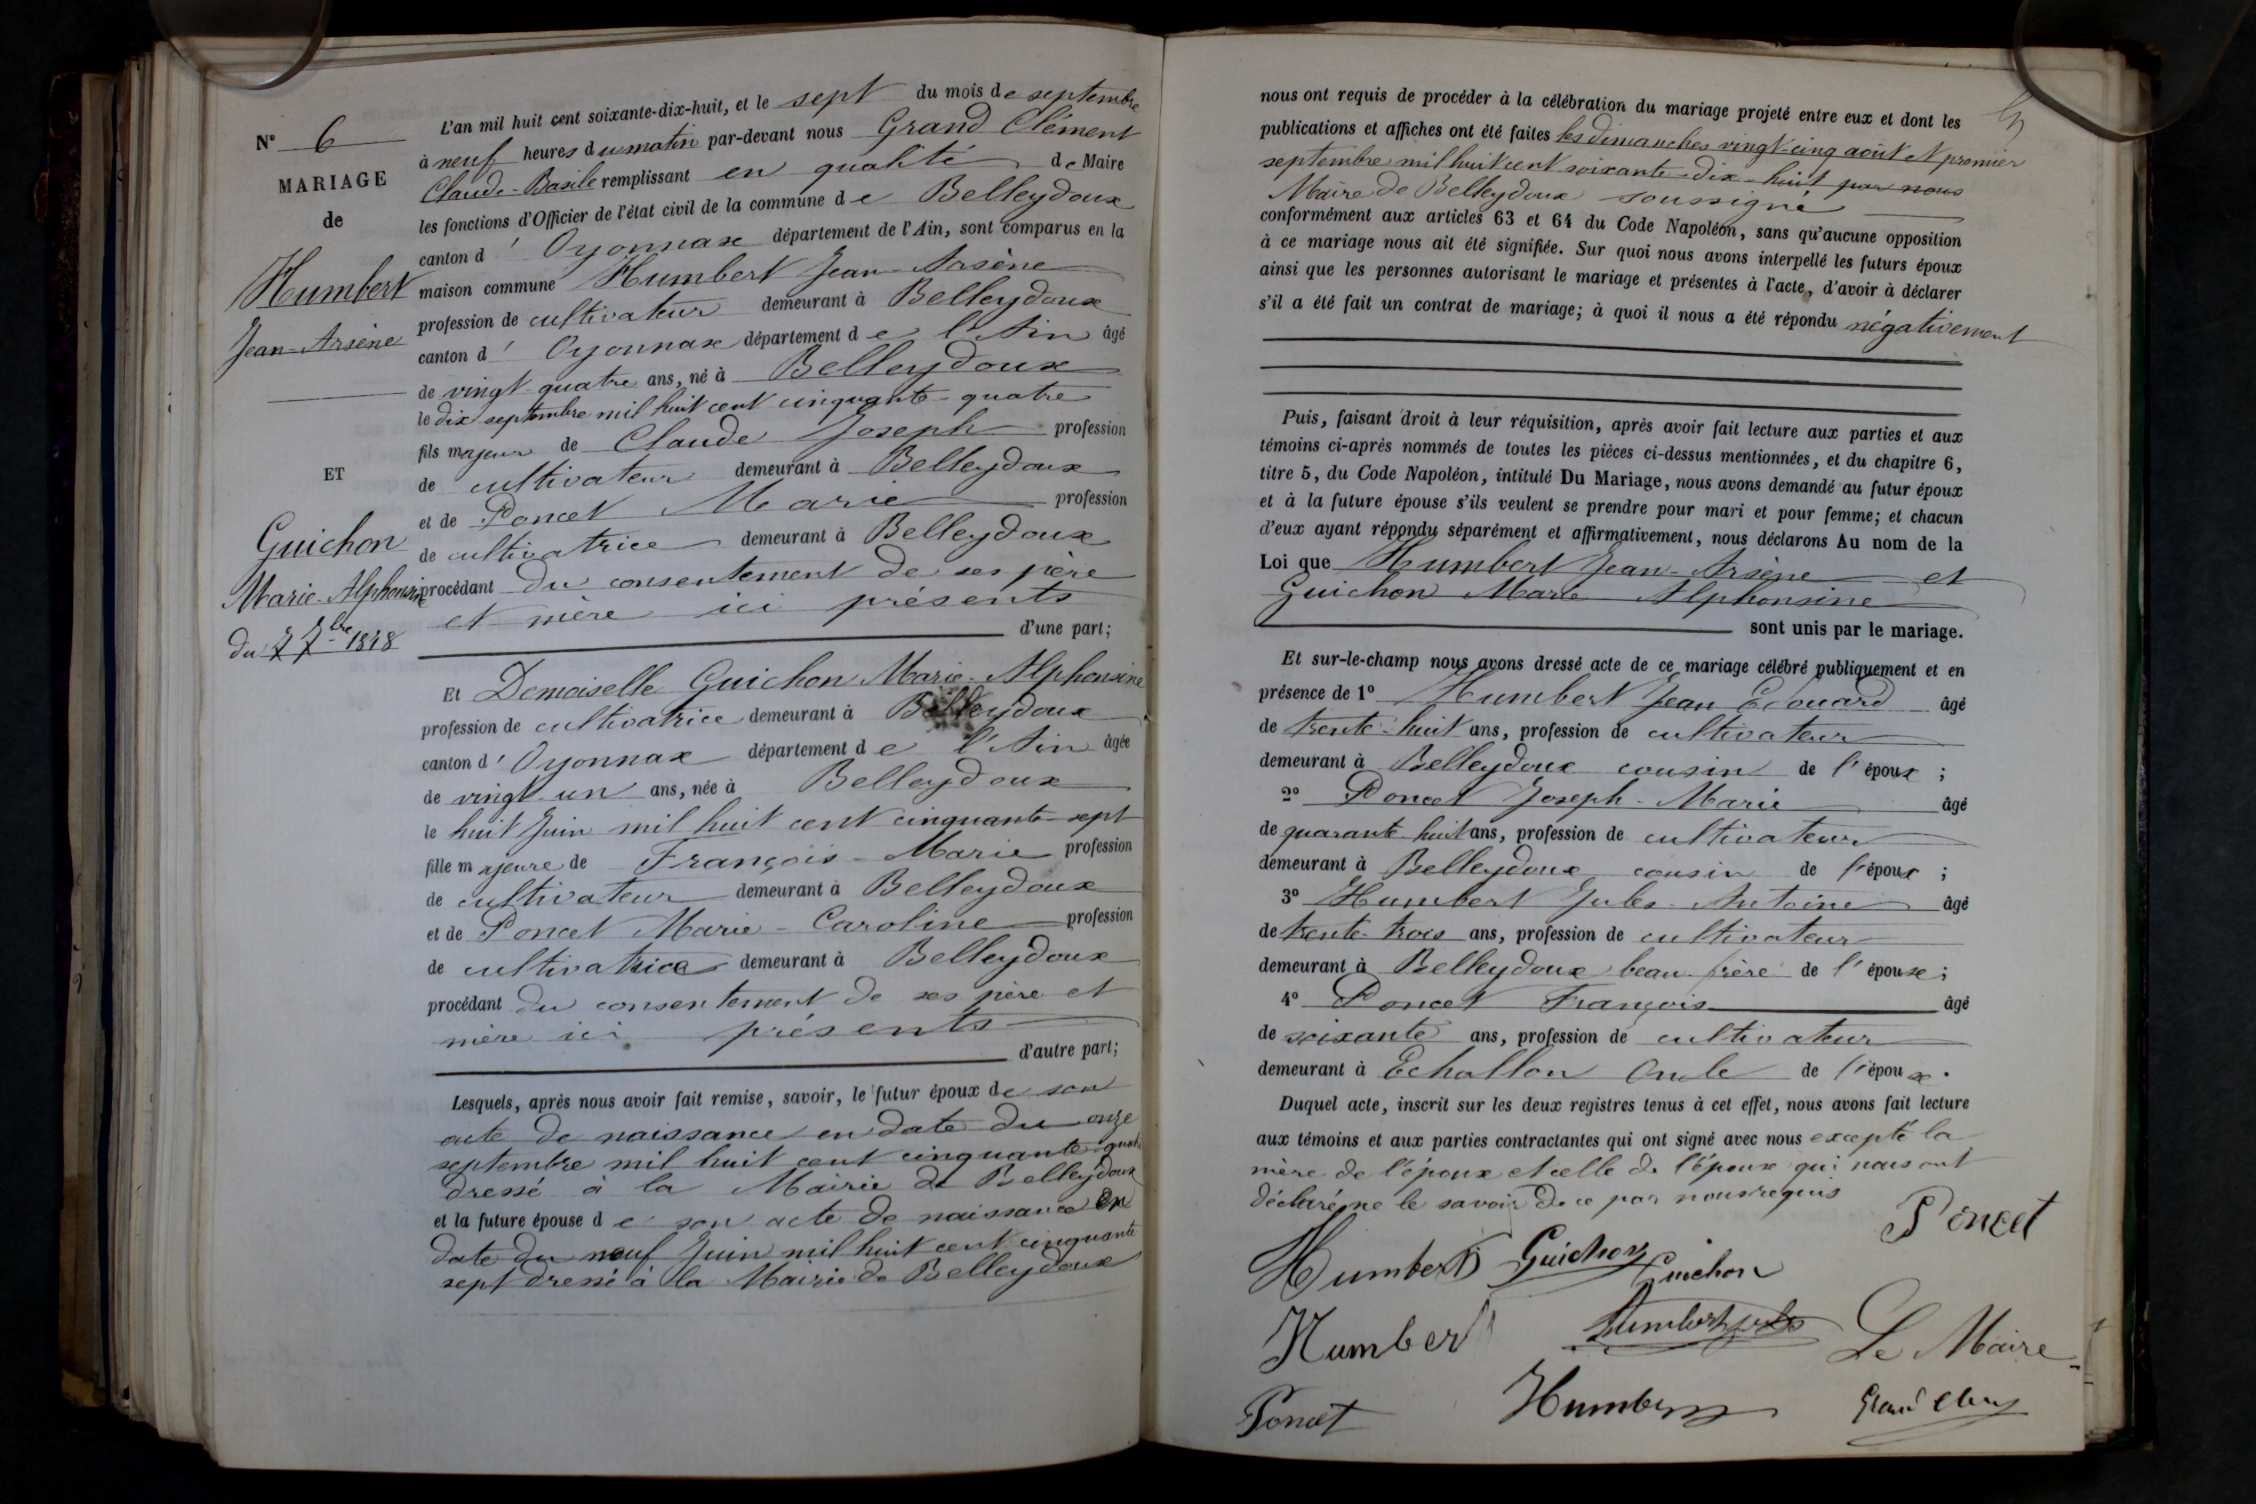 N° 6
MARIAGE
de
Humbert
Jean-Arsène
ET
Guichon
Marie-Alphonsine
du 7 7bre 1878
L'an mil huit cent soixante-dix-huit, et le sept du mois de septembre
à neuf heures du matin par-devant nous Grand Clément
Claude-Basile remplissant en qualité de Maire
les fonctions d'Officier de l'état civil de la commune de Belleydoux
canton d' Oyonnax département de l'Ain, sont comparus en la
maison commune Humbert Jean-Arsène
profession de cultivateur demeurant à Belleydoux
canton d' Oyonnax département de l'Ain âgé
de vingt-quatre ans, né à Belleydoux
le dix septembre mil huit cent cinquante-quatre
fils majeur de Claude Joseph profession
de cultivateur demeurant à Belleydoux
et de Poncet Marie profession
de cultivatrice demeurant à Belleydoux
procédant du consentement de ses père
et mère ici présents
d'une part;
Et Demoiselle Guichon Marie-Alphonsine
profession de cultivatrice demeurant à Belleydoux
canton d' Oyonnax département de l'Ain âgée
de vingt-un ans, née à Belleydoux
le huit Juin mil huit cent cinquante-sept
fille majeure de François-Marie profession
de cultivateur demeurant à Belleydoux
et de Poncet Marie-Caroline profession
de cultivatrice demeurant à Belleydoux
procédant du consentement de ses père et
mère ici présents
d'autre part;
Lesquels, après nous avoir fait remise, savoir, le futur époux de son
acte de naissance en date du onze
septembre mil huit cent cinquante-quatre
dressé à la Mairie de Belleydoux
et la future épouse de son acte de naissance en
date du neuf Juin mil huit cent cinquante
sept dressé à la Mairie de Belleydoux
nous ont requis de procéder à la célébration du mariage projeté entre eux et dont les
publications et affiches ont été faites les dimanches vingt-cinq août et premier
septembre mil huit cent soixante-dix-huit par nous
Maire de Belleydoux soussigné
conformément aux articles 63 et 64 du Code Napoléon, sans qu'aucune opposition
à ce mariage nous ait été signifiée. Sur quoi nous avons interpellé les futurs époux
ainsi que les personnes autorisant le mariage et présentes à l'acte, d'avoir à déclarer
s'il a été fait un contrat de mariage; à quoi il nous a été répondu négativement
Puis, faisant droit à leur réquisition, après avoir fait lecture aux parties et aux
témoins ci-après nommés de toutes les pièces ci-dessus mentionnées, et du chapitre 6,
titre 5, du Code Napoléon, intitulé Du Mariage, nous avons demandé au futur époux
et à la future épouse s'ils veulent se prendre pour mari et pour femme; et chacun
d'eux ayant répondu séparément et affirmativement, nous déclarons Au nom de la
Loi que Humbert Jean-Arsène et
Guichon Marie Alphonsine
sont unis par le mariage.
Et sur-le-champ nous avons dressé acte de ce mariage célébré publiquement et en
présence de 1° Humbert Jean Edouard âgé
de trente-huit ans, profession de cultivateur
demeurant à Belleydoux cousin de l'époux ;
2° Poncet Joseph-Marie âgé
de quarante-huit ans, profession de cultivateur
demeurant à Belleydoux cousin de l'époux ;
3° Humbert Jules-Antoine âgé
de trente-trois ans, profession de cultivateur
demeurant à Belleydoux beau-frère de l'épouse ;
4° Poncet François âgé
de soixante ans, profession de cultivateur
demeurant à Echallon Oncle de l'époux .
Duquel acte, inscrit sur les deux registres tenus à cet effet, nous avons fait lecture
aux témoins et aux parties contractantes qui ont signé avec nous excepté la
mère de l'époux et celle de l'épouse qui nous ont
déclaré ne le savoir de ce par nous requis
Poncet
Humbert Guichon Guichon
Humbert Humbert Jules Le Maire
Poncet Humbert